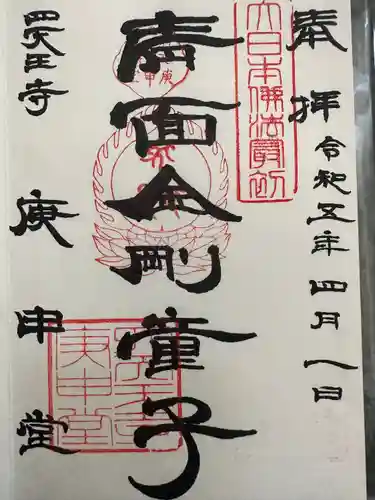 奉拝 令和五年四月一日
大日本佛法最初
青面金剛童子
庚申
四天王寺 庚申堂
四天王寺庚申堂